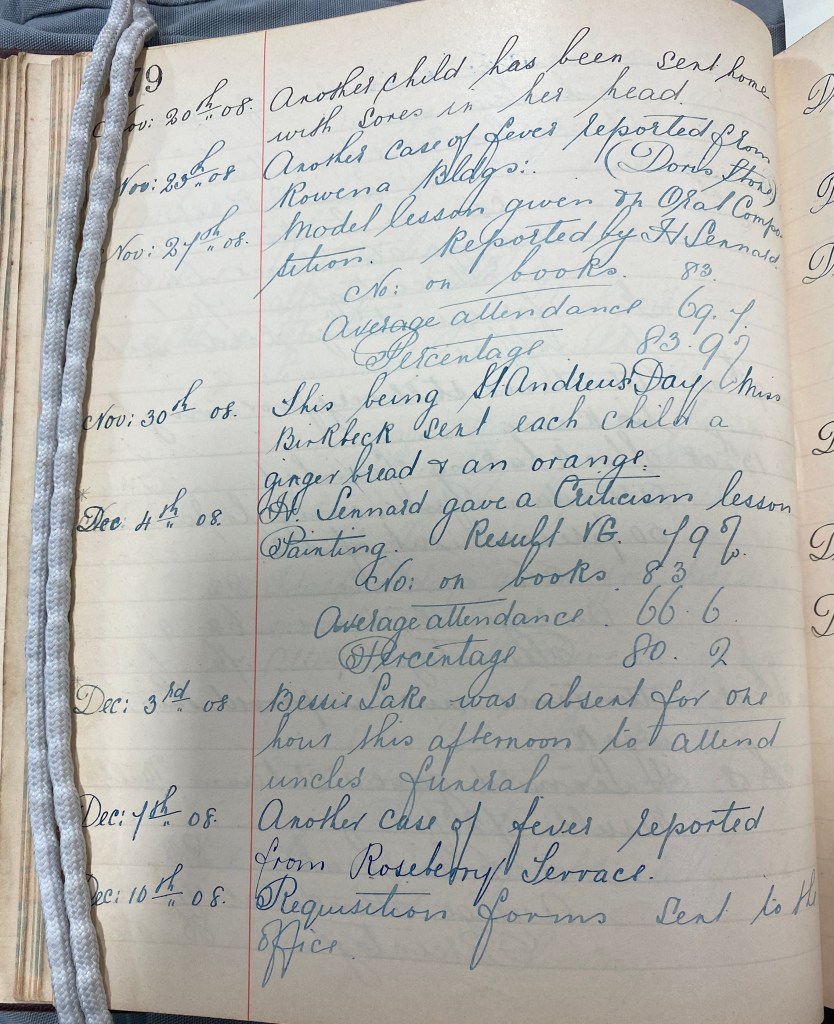 79
Nov: 20th 08. Another child has been sent home
with sores in her head.
Nov: 23th 08 Another case of fever reported from
Rowena Bldgs:. (Doris Stone)
Nov: 27th 08. Model lesson given on Oral Compo-
sition. Reported by H Lennard.
No: on books. 83.
Average attendance 69.7.
Percentage 83.9%
Nov: 30th 08. This being St Andrew's Day, Miss
Birkbeck sent each child a
ginger bread & an orange.
Dec 4th 08. H. Lennard gave a Criticism lesson
Painting. Result VG. 79%.
No: on books 83
Average attendance. 66.6.
Percentage 80.2
Dec: 3rd 08 Bessie Lake was absent for one
hour this afternoon to attend
uncles funeral
Dec: 7th 08. Another case of fever reported
from Roseberry Terrace.
Dec: 10th 08. Requisition forms sent to the
office.